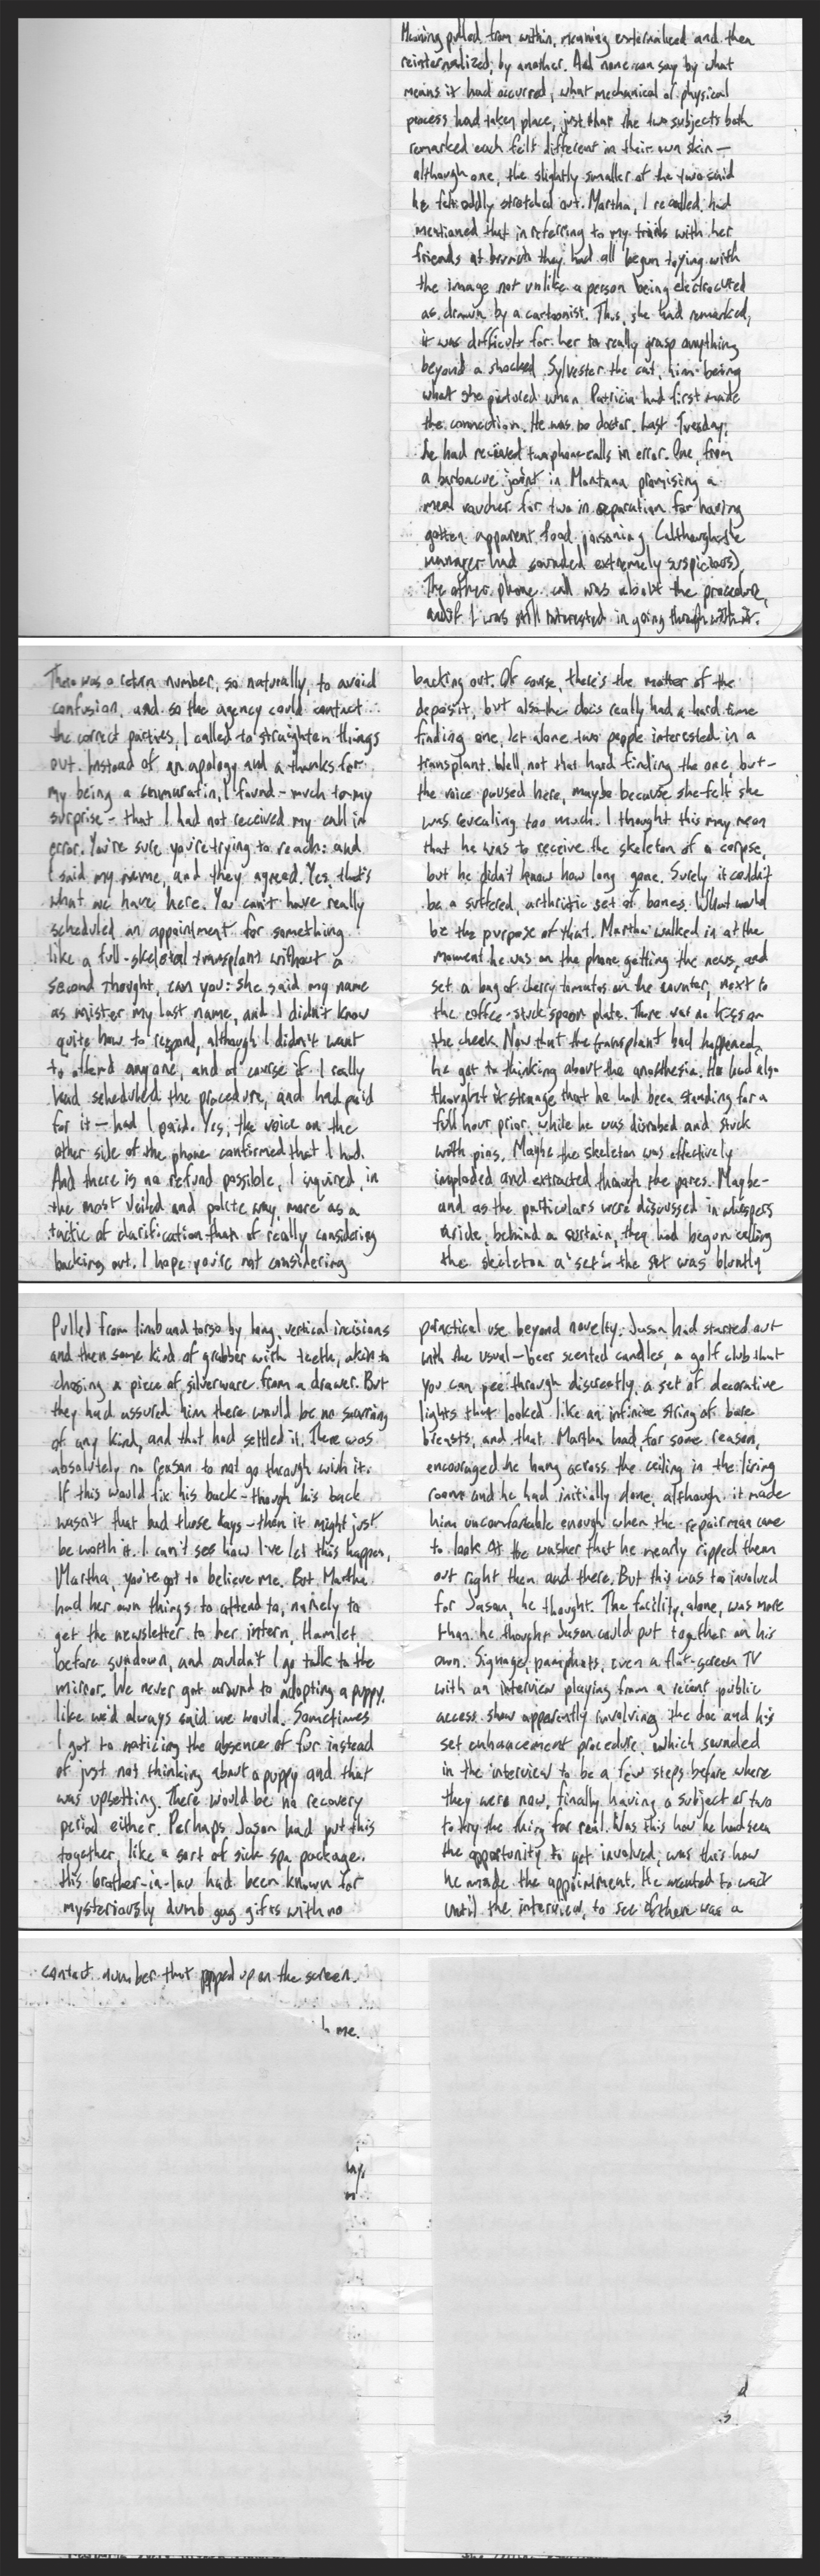 Meaning pulled from within, meaning externalized and then
reinternalized, by another. And none can say by what
means it had occurred, what mechanical or physical
process had taken place, just that the two subjects both
remarked each felt different in their own skin—
although one, the slightly smaller of the two said
he felt oddly stretched out. Martha, I recalled, had
mentioned that in referring to my trials with her
friends at brunch they had all begun toying with
the image not unlike a person being electrocuted
as drawn by a cartoonist. Thus, she had remarked,
it was difficult for her to really grasp anything
beyond a shocked Sylvester the cat, him being
what she pictured when Patricia had first made
the connection. He was no doctor. Last Tuesday,
he had received two phone calls in error. One, from
a barbacue joint in Montana promising a
meal voucher for two in reparation for having
gotten apparent food poisoning (although the
manager had sounded extremely suspicious).
The other phone call was about the procedure,
and if I was still interested in going through with it.
There was a return number, so naturally, to avoid
confusion, and so the agency could contact
the correct parties, I called to straighten things
out. Instead of an apology and a thanks for
my being a I found – much to my
surprise – that I had not received my call in
error. You're sure you're trying to reach: and
I said my name, and they agreed. Yes, that's
what we have here. You can't have really
scheduled an appointment for something
like a full-skeletal transplant without a
second thought, can you: she said my name
as mister my last name, and I didn't know
quite how to respond, although I didn't want
to offend anyone, and of course if I really
had scheduled the procedure, and had paid
for it – had I paid. Yes, the voice on the
other side of the phone confirmed that I had.
And there is no refund possible, I inquired, in
the most veiled and polite way, more as a
tactic of clarification than of really considering
backing out. I hope you're not considering
backing out. Of course, there's the matter of the
deposit, but also the docs really had a hard time
finding one, let alone two people interested in a
transplant. Well, not that hard finding the one, but –
the voice paused here, maybe because she felt she
was revealing too much. I thought this may mean
that he was to receive the skeleton of a corpse,
but he didn't know how long gone. Surely it couldn't
be a suffered, arthritic set of bones. What would
be the purpose of that. Martha walked in at the
moment he was on the phone getting the news, and
set a bag of cherry tomatos on the counter, next to
the coffee-stuck spoon plate. There was no kiss on
the cheek. Now that the transplant had happened,
he got to thinking about the anasthesia. He had also
thought it strange that he had been standing for a
full hour prior, while he was disrobed and stuck
with pins. Maybe the skeleton was effectively
imploded and extracted through the pores. Maybe –
and as the particulars were discussed in whispers
aside, behind a curtain, they had begun calling
the skeleton a 'set' – the set was bluntly
Pulled from limb and torso by long, vertical incisions
and then some kind of grabber with teeth, akin to
chosing a piece of silverware from a drawer. But
they had assured him there would be no scarring
of any kind, and that had settled it. There was
absolutely no reason to not go through with it.
If this would fix his back – though his back
wasn't that bad these days – then it might just
be worth it. I can't see how I've let this happen,
Martha, you've got to believe me. But Martha
had her own things to attend to, namely to
get the newsletter to her intern, Hamlet,
before sundown, and couldn't I go talk to the
mirror. We never got around to adopting a puppy,
like we'd always said we would. Sometimes
I got to noticing the absence of fur instead
of just not thinking about a puppy and that
was upsetting. There would be no recovery
period either. Perhaps Jason had put this
together, like a sort of sick spa package.
this brother-in-law had been known for
mysteriously dumb gag gifts with no
practical use beyond novelty. Jason had started out
with the usual – beer scented candles, a golf club that
you can pee through discreetly, a set of decorative
lights that looked like an infinite string of bare
breasts, and that Martha had, for some reason,
encouraged he hang across the ceiling in the living
room and he had initially done, although it made
him uncomfortable enough when the repairman came
to look at the washer that he nearly ripped them
out right then and there. But this was too involved
for Jason, he thought. The facility, alone, was more
than he thought Jason could put together on his
own. Signage, pamphlets, even a flat-screen TV
with an interview playing from a recent public
access show apparently involving the doc and his
set enhancement procedure, which sounded
in the interview to be a few steps before where
they were now, finally having a subject or two
to try the thing for real. Was this how he had seen
the opportunity to get involved; was this how
he made the appointment. He wanted to wait
until the interview, to see if there was a
contact number that popped up on the screen.
me.